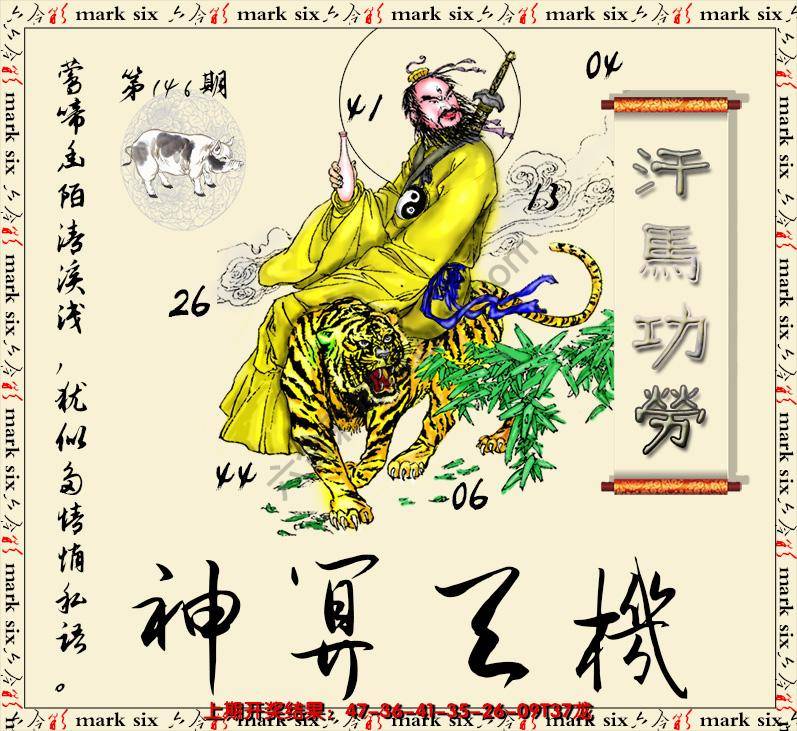 六合彩 mark six 六合彩 mark six 六合彩 mark six 六合彩 mark six 六合彩
莺啼幽陌清溪浅，犹似多情悄私语。
第146期
41
04
13
26
44
06
汗馬功勞
神算天機
上期开奖结果：47-36-41-35-26-09T37龙
mark six 六合彩 mark six 六合彩 mark six 六合彩 mark six